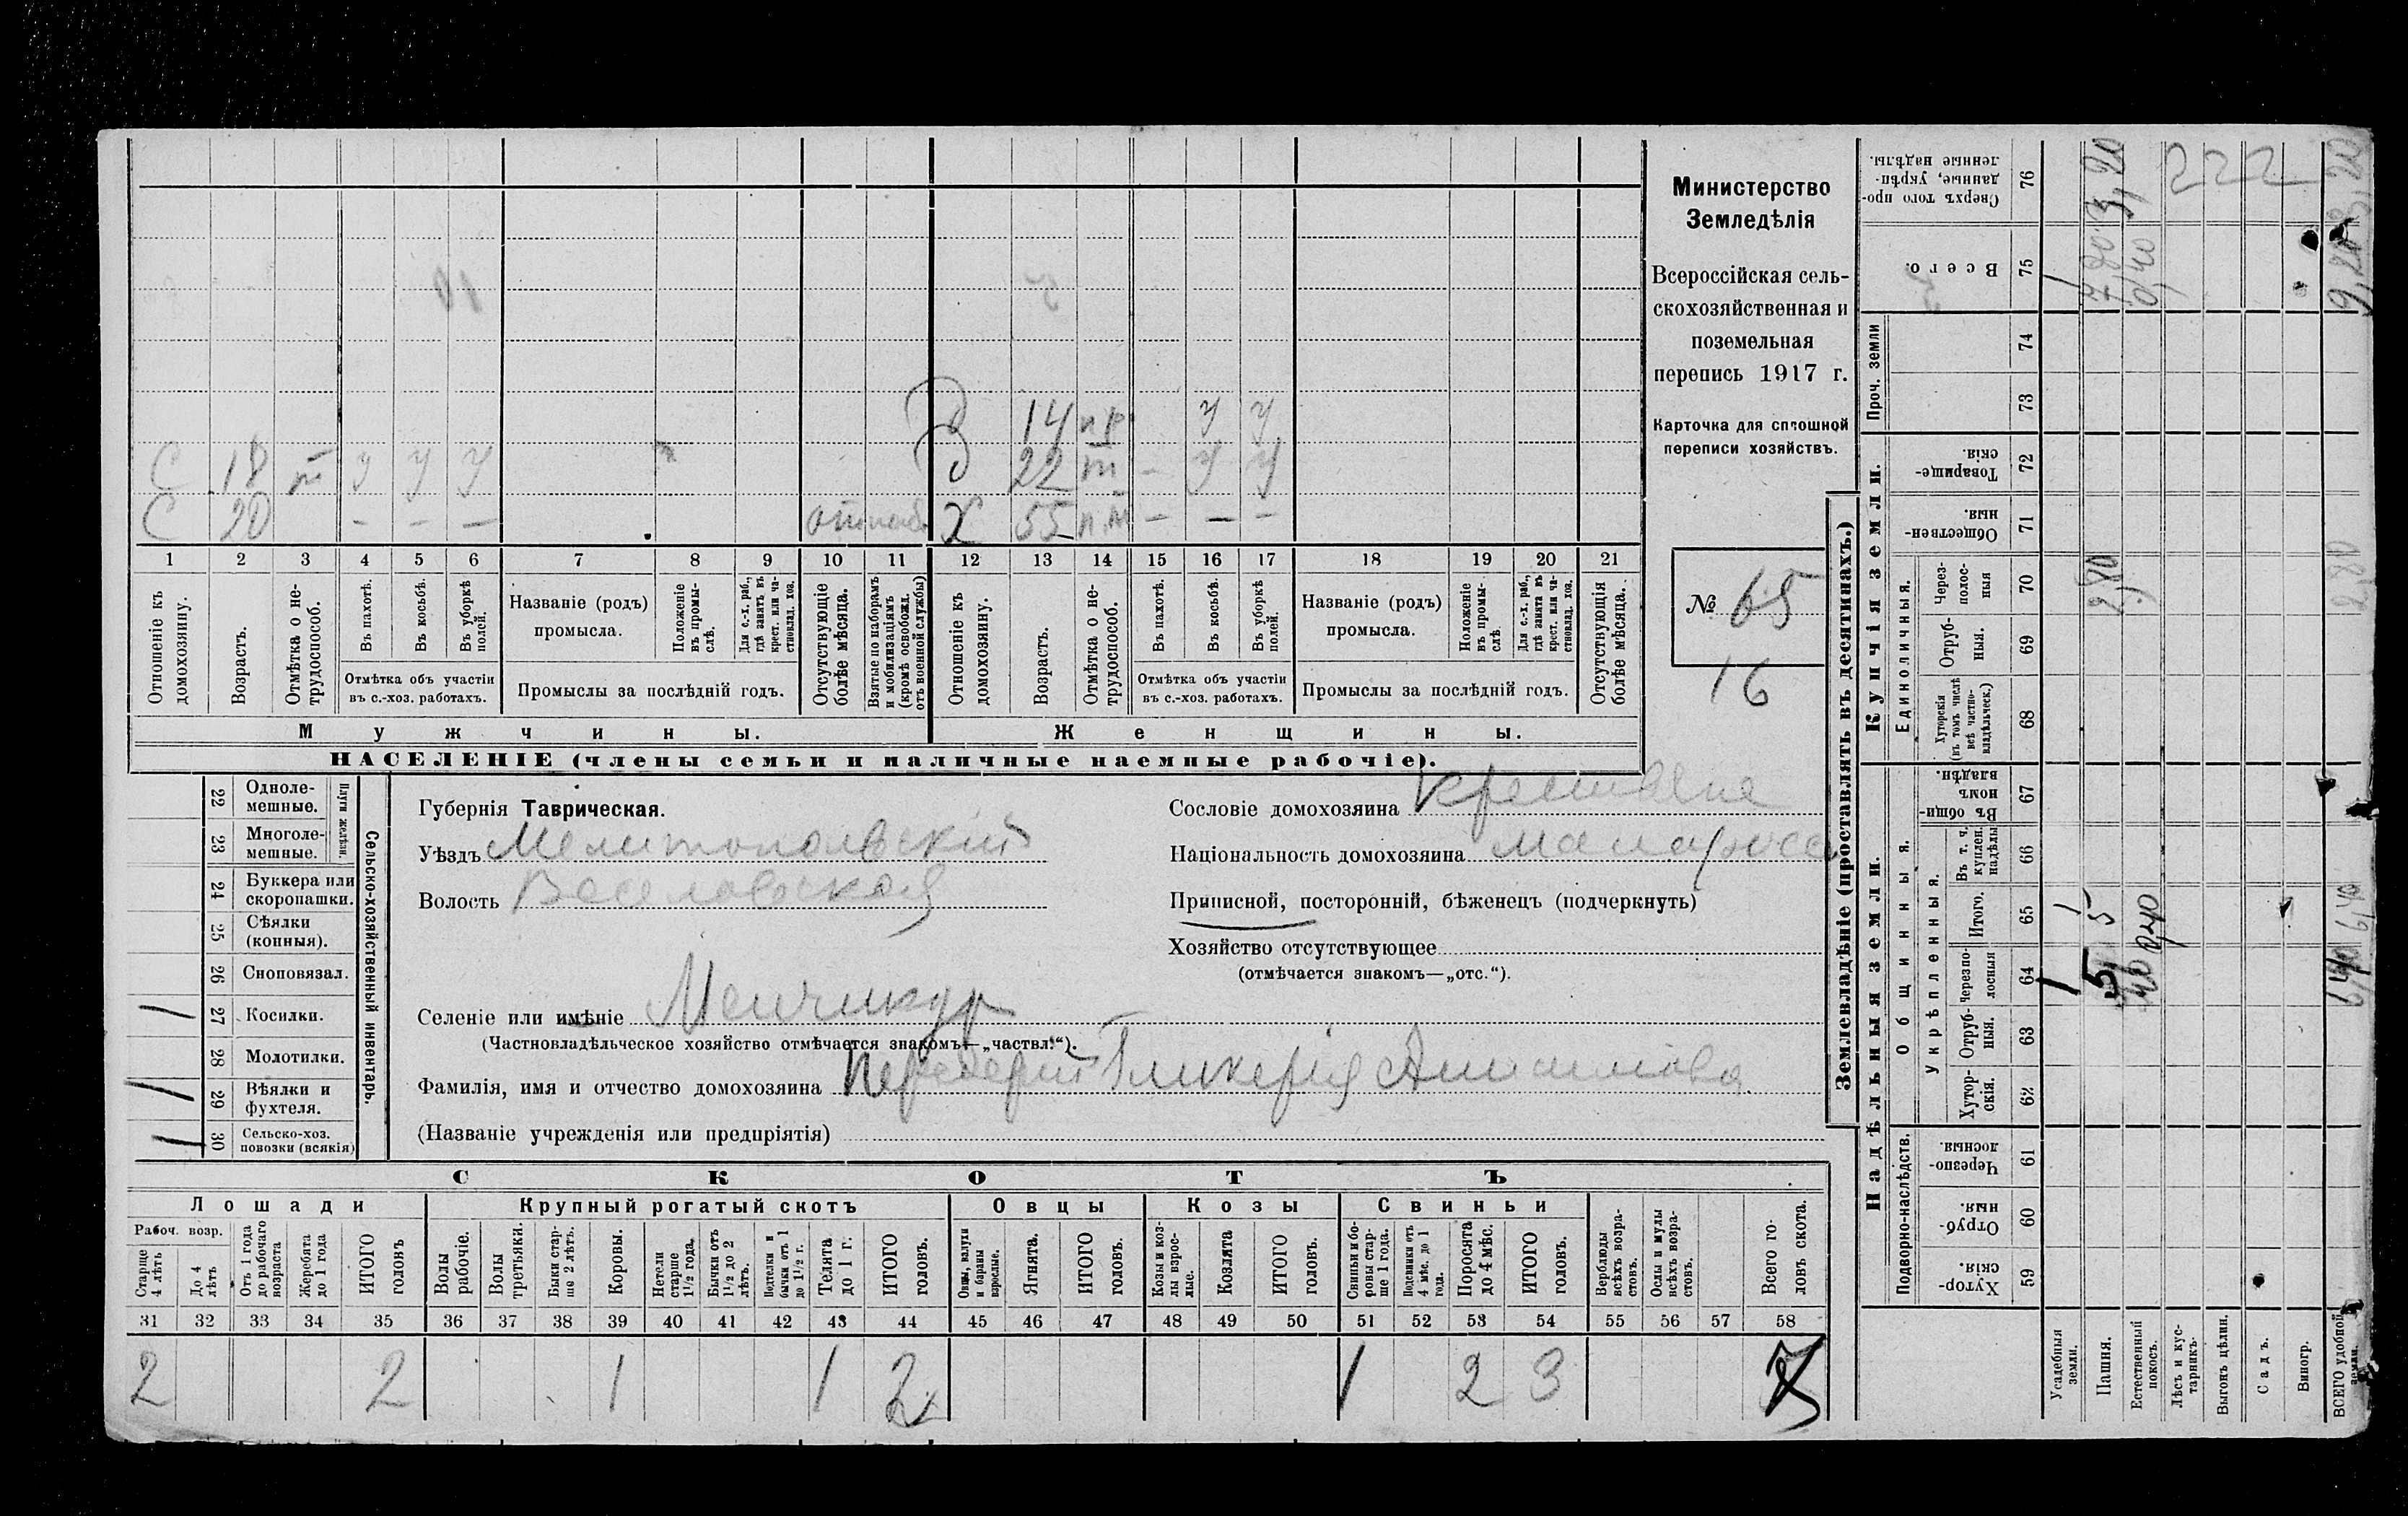 С 18 т у у у
С 20 — — —
Д 14 пр у у
Д 22 т — у у
Х 55 п.т — — —
1 2 3 4 5 6 7 8 9 10 11 12 13 14 15 16 17 18 19 20 21
Отношеніе къ домохозяину.
Возрастъ.
Отмѣтка о не-
трудоспособ.
Въ пахотѣ.
Въ косьбѣ.
Въ уборкѣ полей.
Отмѣтка объ участіи
въ с.-хоз. работахъ.
Названіе (родъ)
промысла.
Положеніе въ промы-
слѣ.
Для с.-х. раб., гдѣ занятъ въ крест. или ча-
стновлад. хоз.
Промыслы за послѣдній годъ.
Отсутствующіе болѣе мѣсяца.
Взятые по наборамъ и мобилизаціямъ (кромѣ освобожд. отъ военной службы)
Отношеніе къ домохозяину.
Возрастъ.
Отмѣтка о не-
трудоспособ.
Въ пахотѣ.
Въ косьбѣ.
Въ уборкѣ полей.
Отмѣтка объ участіи
въ с.-хоз. работахъ.
Названіе (родъ)
промысла.
Положеніе въ промы-
слѣ
Для с.-х. раб., гдѣ занята въ крест. или ча-
стновлад. хоз.
Промыслы за послѣдній годъ.
Отсутствующія болѣе мѣсяца.
Мужчины. Женщины.
НАСЕЛЕНІЕ (члены семьи и наличные наемные рабочіе).
Министерство
Земледѣлія
Всероссійская сель-
скохозяйственная и
поземельная
перепись 1917 г.
Карточка для сплошной
переписи хозяйствъ.
№ 65
16
22 Одноле-
мешные.
23 Многоле-
мешные.
Плуги желѣзн.
24 Буккера или
скоропашки.
25 Сѣялки
(конныя).
26 Сноповязал.
27 Косилки. 1
28 Молотилки.
29 Вѣялки и
фухтеля. 1
30 Сельско-хоз.
повозки (всякія) 1
Сельско-хозяйственный инвентарь.
Губернія Таврическая.
Уѣздъ Мелитопольскій
Волость Веселовская
Сословіе домохозяина крестьяне
Національность домохозяина малоросс
Приписной, посторонній, бѣженецъ (подчеркнуть)
Хозяйство отсутствующее
(отмѣчается знакомъ—„отс.“).
Селеніе или имѣніе Менчикур
(Частновладѣльческое хозяйство отмѣчается знакомъ—„частвл.“).
Фамилія, имя и отчество домохозяина Передерій Гликерія Анисимова
(Названіе учрежденія или предпріятія)
СКОТЪ
Лошади Крупный рогатый скотъ Овцы Козы Свиньи
Рабоч. возр.
Старше 4 лѣтъ
До 4 лѣтъ
Отъ 1 года до рабочаго возраста
Жеребята до 1 года
ИТОГО головъ
Волы рабочіе.
Волы третьяки.
Быки стар-
ше 2 лѣтъ.
Коровы.
Нетели старше 1½ года.
Бычки отъ 1½ до 2 лѣтъ.
бычки отъ 1 до 1½ г.
Телята до 1 г.
ИТОГО головъ.
Овцы, валухи и бараны взрослые.
Ягнята.
ИТОГО головъ.
Козы и коз-
лы взрос-
лые.
Козлята
ИТОГО головъ.
Свиньи бо-
ровы стар-
ше 1 года.
4 мѣс. до 1 года.
Поросята до 4 мѣс.
ИТОГО головъ.
Верблюды всѣхъ возра-
стовъ.
Ослы и мулы всѣхъ возра-
стовъ.
Всего го-
ловъ скота.
31 32 33 34 35 36 37 38 39 40 41 42 43 44 45 46 47 48 49 50 51 52 53 54 55 56 57 58
2 2 1 1 2 1 2 3 7
Землевладѣніе (проставлять въ десятинахъ.)
Надѣльныя земли. Купчія земли. Проч. земли
Подворно-наслѣдств.
Общинныя.
Укрѣпленныя.
Единоличныя.
Хутор-
скія. 59
Отруб-
ныя. 60
Черезпо-
лосныя. 61
Хутор-
скія. 62
Отруб-
ныя. 63
Черезпо-
лосныя 64
Итого. 65
Въ т. ч. куплен. надѣлы 66
Въ общин-
номъ владѣн. 67
Хуторскія (въ томъ числѣ всѣ частно-
владѣльческ.) 68
Отруб-
ныя. 69
Через-
полос-
ныя 70
Обществен-
ныя. 71
Товарище-
скія. 72
73
74
Всего. 75
Сверхъ того про-
данные, укрѣп-
ленные надѣлы. 76
Усадебныя земли. 1 1 1
Пашня. 5 5 2,80 7,80 3,20
Естественный покосъ. 0,40 0,40
Лѣсъ и кус-
тарникъ.
Выгонъ цѣлин.
Садъ.
Виногр.
ВСЕГО удобной земли. 6,40 6,40 2,80 9,20 3,20